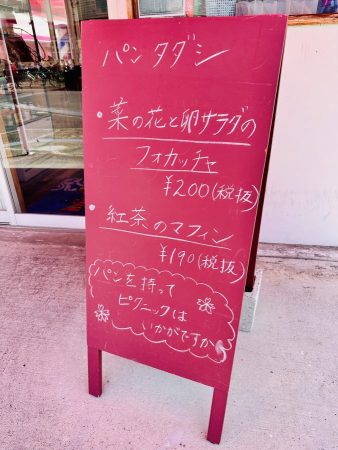 パンタダシ
・菜の花と卵サラダの
フォカッチャ
¥200(税抜)
・紅茶のマフィン
¥190(税抜)
パンを持って
ピクニックは
いかがですか